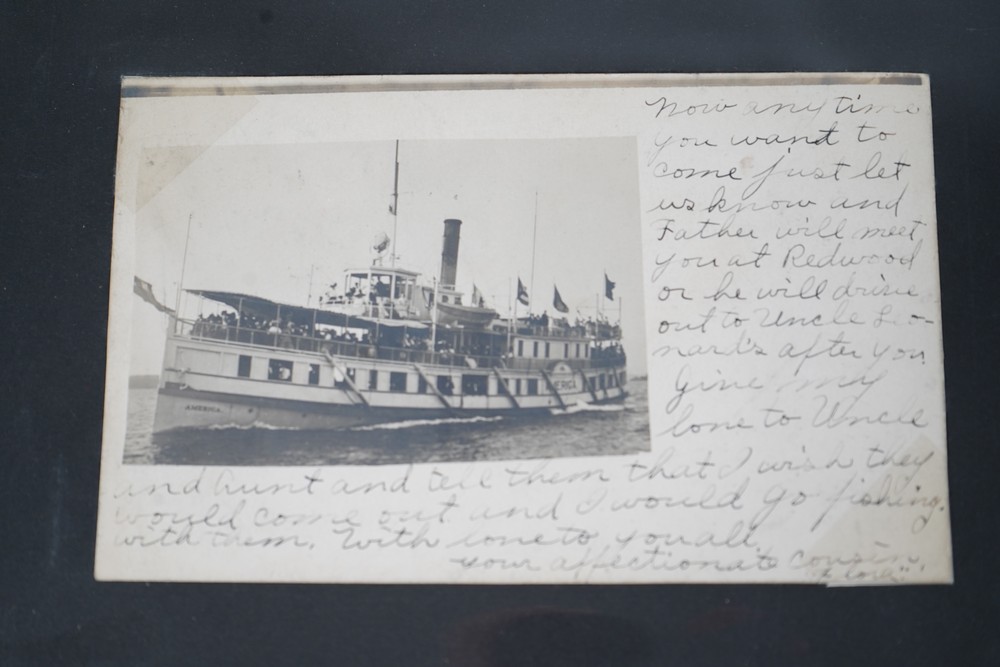 Now any time
you want to
come just let
us know and
Father will meet
you at Redwood
or he will drive
out to Uncle Leo-
nard's after you.
Give my
love to Uncle
and Aunt and tell them that I wish they
would come out and I would go fishing.
with them. With love to you all,
your affectionate cousin,
AMERICA
ERICA